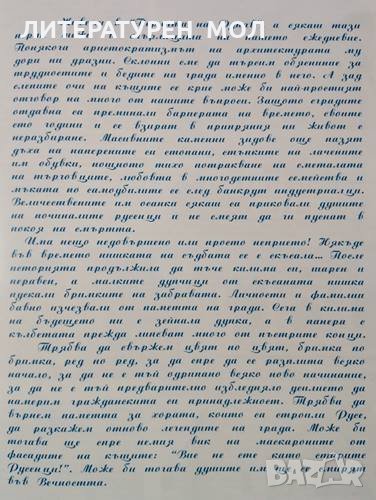 Живеем в Градът на
аристокр към нашето ежедневие.
Понякога аристократизмът на архитектурата му
дори ни дразни. Склонни сме да търсим обяснение за
трудностите и бедите на града именно в него. А зад
слепите очи на къщите се крие може би най-простият
отговор на много от нашите въпроси. Защото сградите
отдавна са преминали бариерата на времето, своите
сто години и се взират в припряния на живот с
неразбиране. Масивните каменни зидове още пазят
духа на наперените си стопани, стъпките на лачените
им обувки, нощното тихо потракване на сметалата
на търговците, любовта в многодетните семейства и
мъката по самоубилите се след банкрут индустриалци.
Величествените им осанки сякаш са приковали душите
на починалите русенци и не смеят да ги пуснат в
покоя на смъртта.
Има нещо недовършено или просто неприето! Някъде
във времето нишката на съдбата се е скъсала... После
историята продължила да тъче килима си, шарен и
неравен, а малките дупчици от скъсаната нишка
издавали бримките на забравата. Личности и фамилии
бавно изчезвали от паметта на града. Сега в килима
на бъдещето ни е зейнала дупка, а в панера с
кълбетата прежда липсват много от пъстрите конци.
Трябва да свържем цвят по цвят, бримка по
бримка, ред по ред, за да спре да се разплита всяко
начало, за да не е тъй одрипано всяко ново начинание,
за да не е тъй предварително избледняло усилието да
намерим гражданската си принадлежност. Трябва да
върнем паметта за хората, които са строили Русе,
да разкажем отново легендите на града. Може би
тогава ще спре немия вик на маскароните от
фасадите на къщите: "Вие не сте като старите
Русенци!". Може би тогава душите им ще се смирят
във Вечността.
БАЗАР